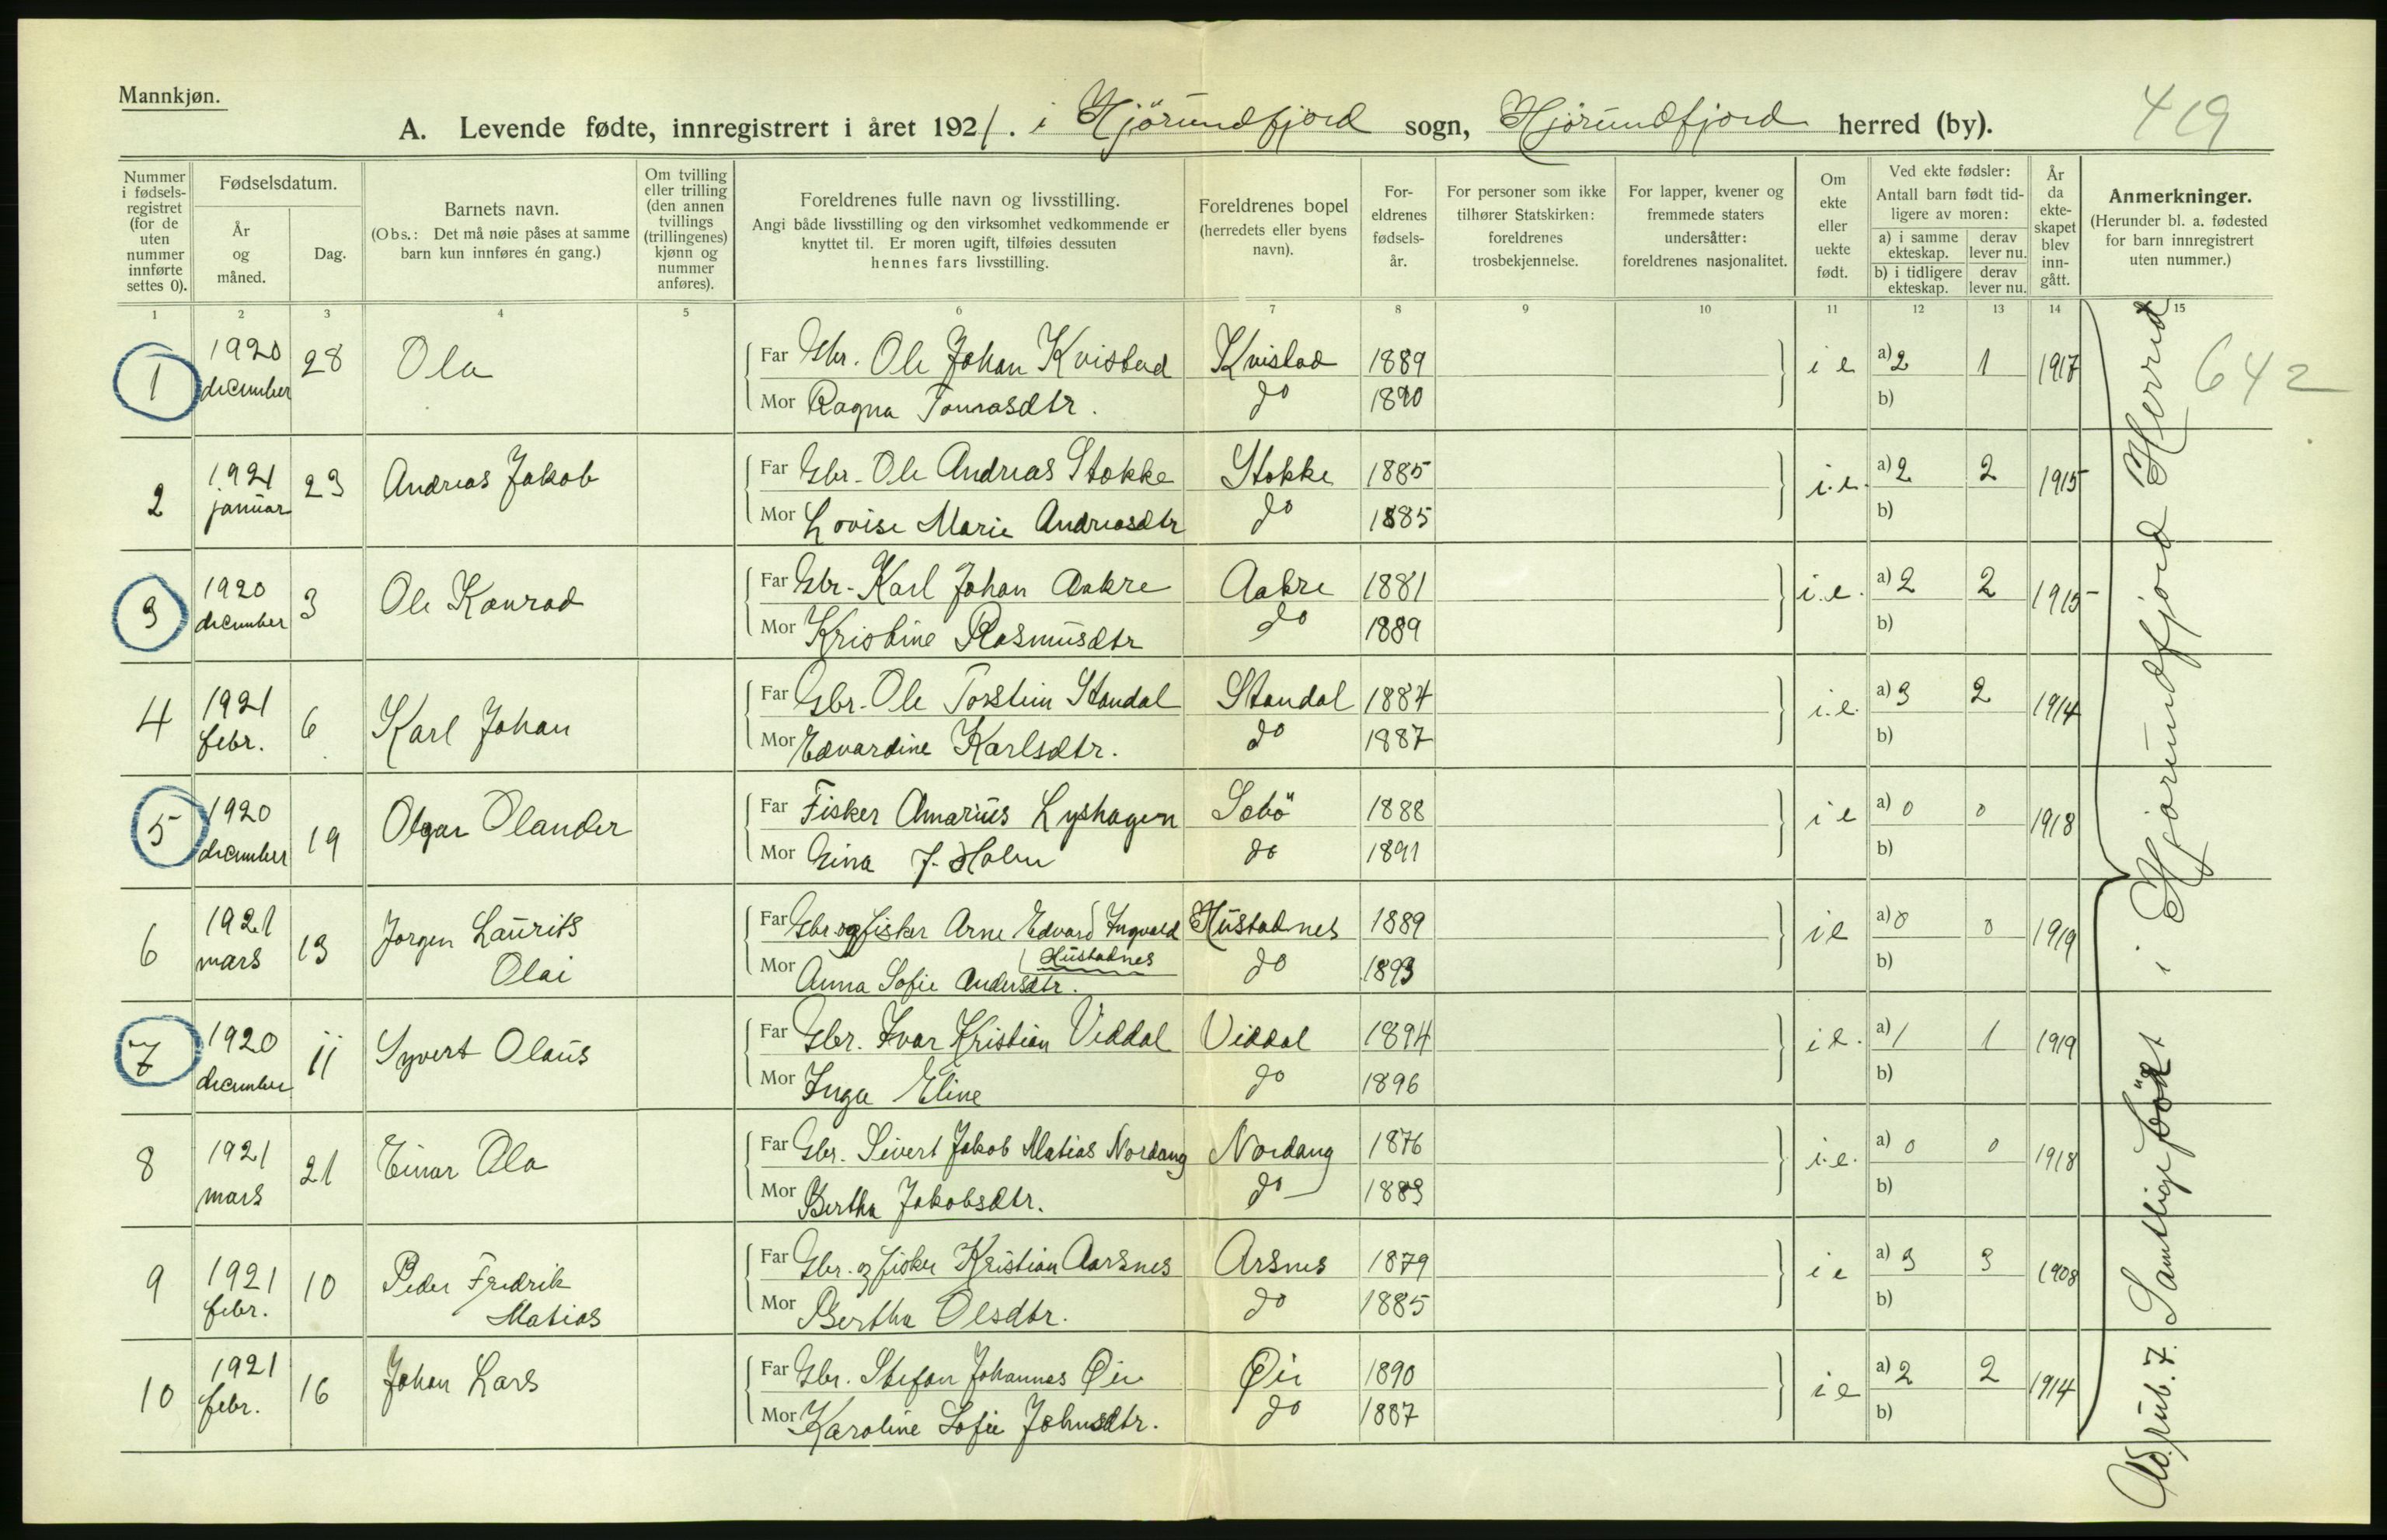 Mannkjøn.
419
A. Levende fødte, innregistrert i året 1921. i Hjörundfjord sogn, Hjörundfjord herred (by).
Nummer i fødsels-registret (for de uten nummer innførte settes 0).
Fødselsdatum.
År og måned.
Dag.
Barnets navn.
(Obs.: Det må nøie påses at samme barn kun innføres én gang.)
Om tvilling eller trilling (den annen tvillings (trillingenes) kjønn og nummer anføres).
Foreldrenes fulle navn og livsstilling.
Angi både livsstilling og den virksomhet vedkommende er knyttet til. Er moren ugift, tilføies dessuten hennes fars livsstilling.
Foreldrenes bopel (herredets eller byens navn).
For-eldrenes fødsels-år.
For personer som ikke tilhører Statskirken: foreldrenes trosbekjennelse.
For lapper, kvener og fremmede staters undersåtter: foreldrenes nasjonalitet.
Om ekte eller uekte født.
Ved ekte fødsler:
Antall barn født tid-ligere av moren:
a) i samme ekteskap.
derav lever nu.
b) i tidligere ekteskap.
derav lever nu.
År da ekte-skapet blev inn-gått.
Anmerkninger.
(Herunder bl. a. fødested for barn innregistrert uten nummer.)
1 2 3 4 5 6 7 8 9 10 11 12 13 14 15
1 1920 december 28 Ola
Far Gbr. Ole Johan Kvistad Kvistad 1889 i e a) 2 1 1917 642
Mor Ragna Tomasdtr. do 1890 b)
2 1921 januar 23 Andreas Jakob
Far Gbr. Ole Andreas Stokke Stokke 1885 i.e. a) 2 2 1915
Mor Lovise Marie Andreasdtr do 1885 b)
3 1920 december 3 Ole Konrad
Far Gbr. Karl Johan Aakre Aakre 1881 i.e. a) 2 2 1915
Mor Kristine Rasmusdtr do 1889 b)
4 1921 febr. 6 Karl Johan
Far Gbr. Ole Torstein Standal Standal 1884 i.e. a) 3 2 1914
Mor Edvardine Karlsdtr. do 1887 b)
5 1920 december 19 Olgar Olander
Far Fisker Amarius Lyshagen Sæbö 1888 i e a) 0 0 1918
Mor Gina J. Holm do 1891 b)
6 1921 mars 13 Jørgen Laurits Olai
Far Gbr. og fisker Arne Edvard Ingvald Hustadnes Hustadnes 1889 i e a) 0 0 1919
Mor Anna Sofie Andersdtr. do 1893 b)
7 1920 december 11 Syvert Olaus
Far Gbr. Ivar Kristian Viddal Viddal 1894 i e. a) 1 1 1919
Mor Inga Eline do 1896 b)
8 1921 mars 21 Einar Ola
Far Gbr. Sivert Jakob Matias Nordang Nordang 1876 i.e. a) 0 0 1918
Mor Bertha Jakobsdtr. do 1883 b)
9 1921 febr. 10 Peder Fredrik Matias
Far Gbr. og fisker Kristian Aarsnes Arsnes 1879 i e a) 3 3 1908
Mor Bertha Olsdtr. do 1885 b)
10 1921 febr. 16 Johan Lars
Far Gbr. Stefan Johannes Øie Øie 1890 i e a) 2 2 1914
Mor Karoline Sofie Johnsdtr. do 1887 b)
Ad. rub. 7. Samtlige födt i Hjörundfjord Herred